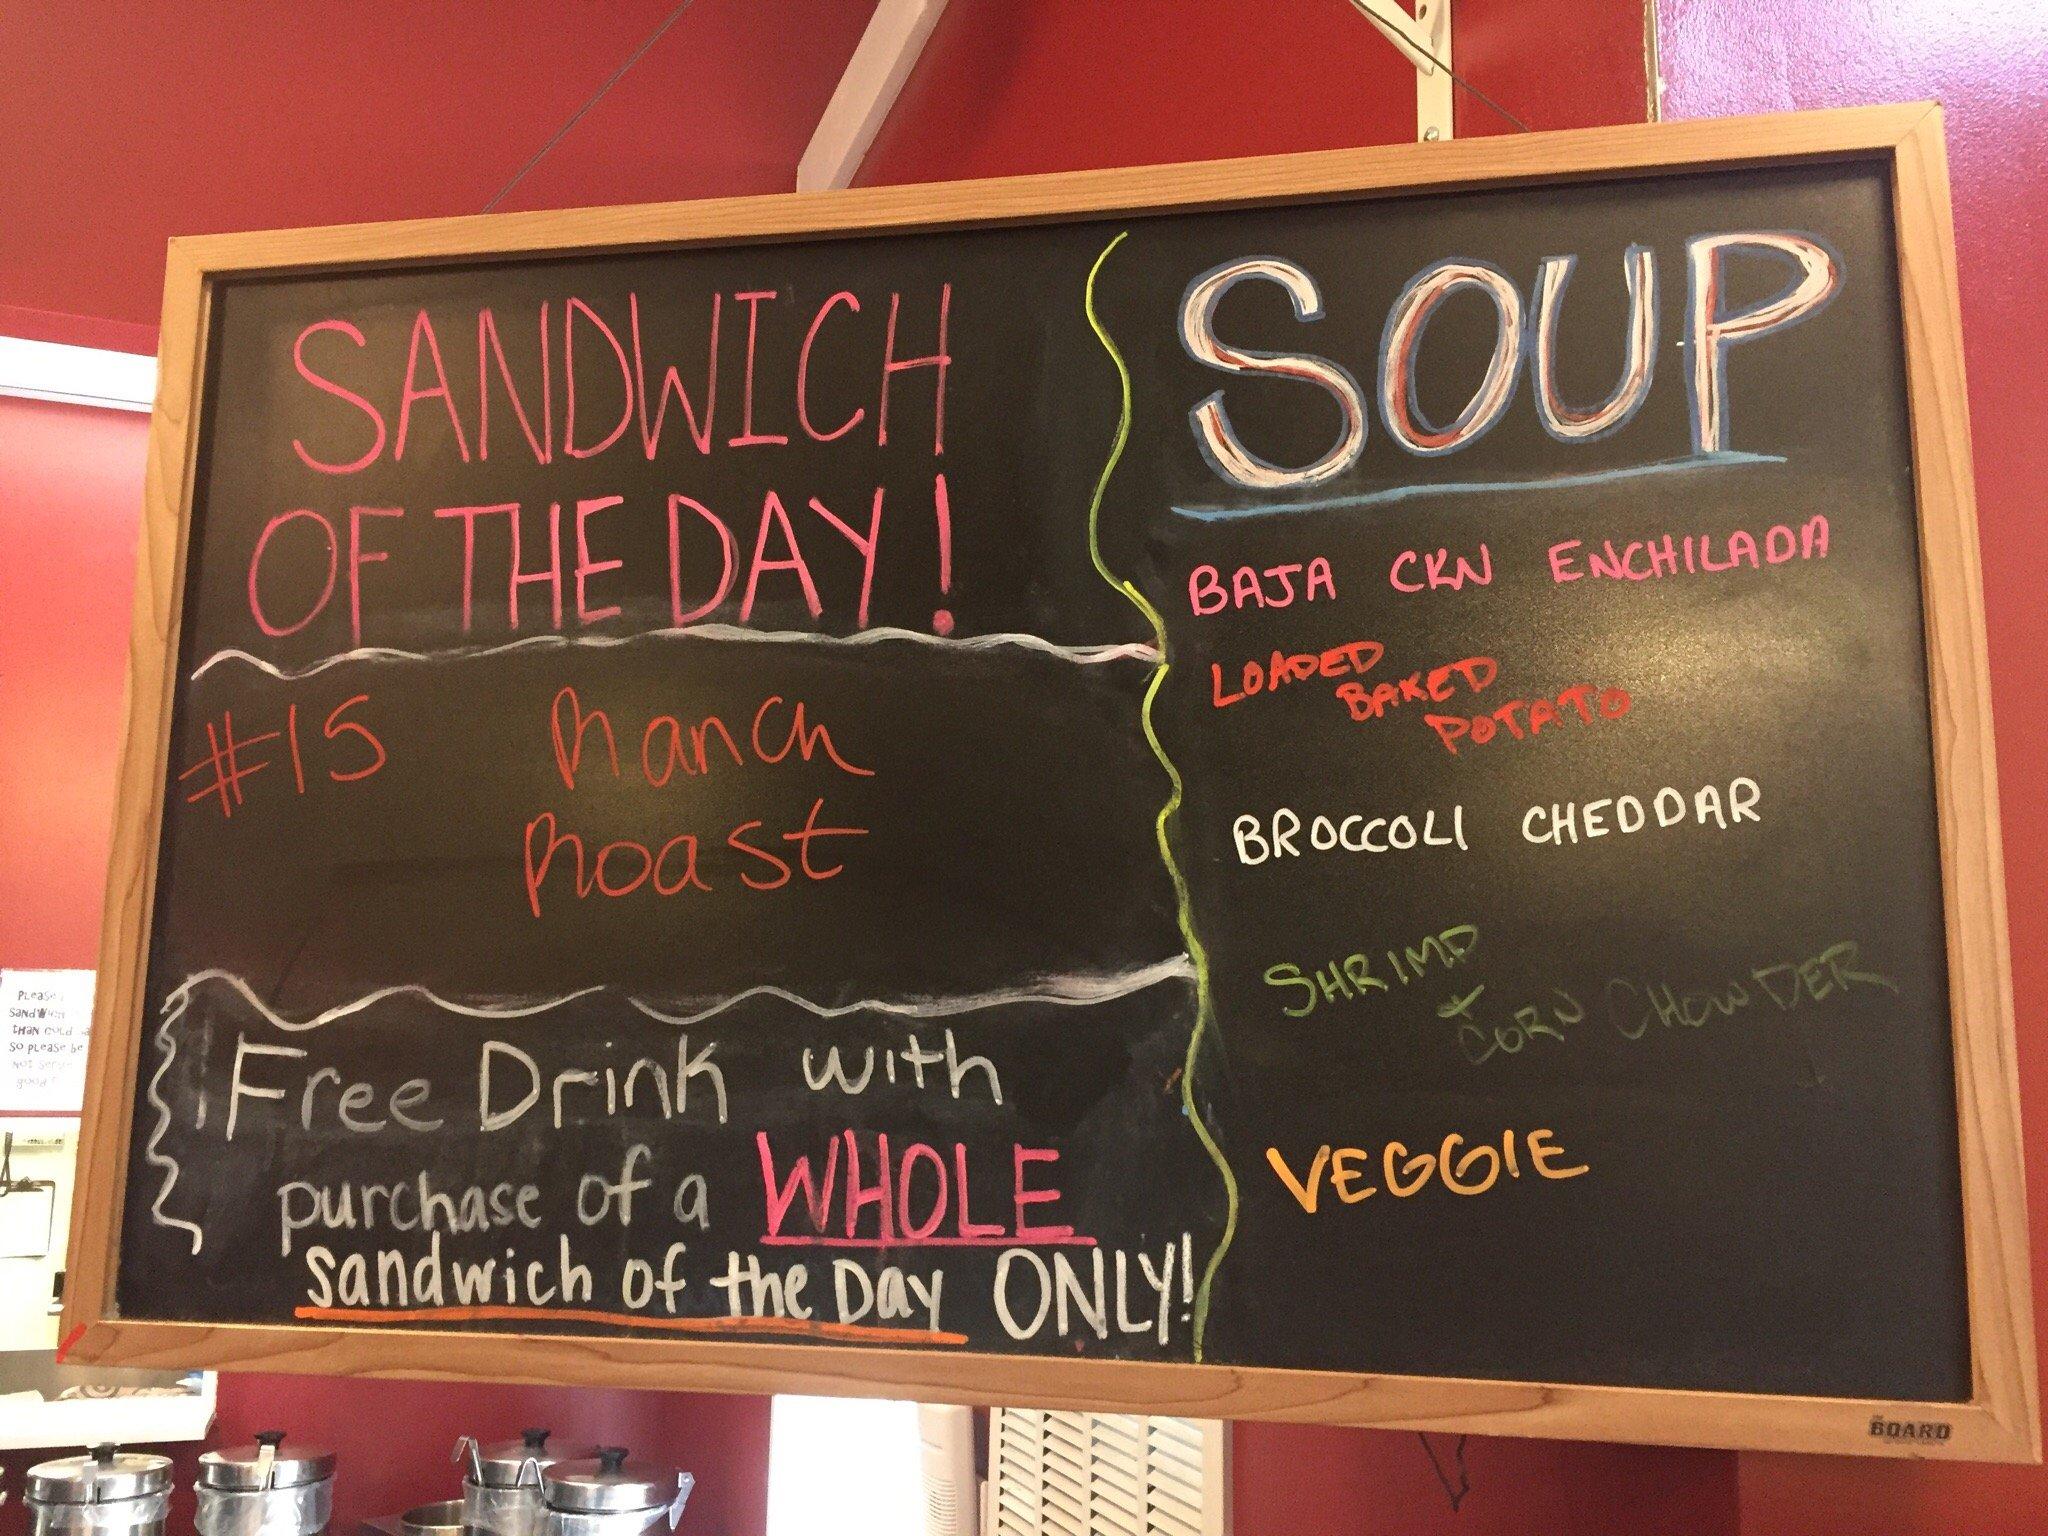 SANDWICH
OF THE DAY!
#15 Ranch
Roast
Free Drink with
purchase of a WHOLE
sandwich of the Day ONLY!
SOUP
BAJA CKN ENCHILADA
LOADED
BAKED
POTATO
BROCCOLI CHEDDAR
SHRIMP
& CORN CHOWDER
VEGGIE
Please
Sandwich
than cold
so please be
Not
good
BOARD